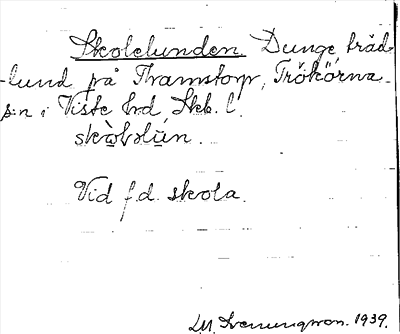 Skolelunden. Dunge, träd-
-lund på Framstorp, Trökörna
s:n i Viste hrd, Skb. l.
skωləlún.
Vid f.d. skola.
1939.